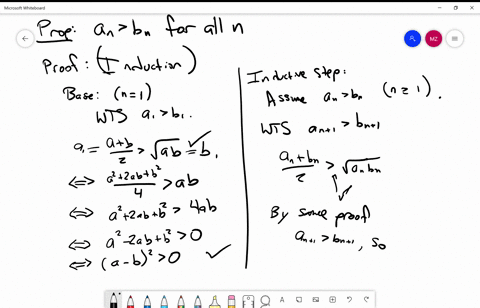 Microsoft Whiteboard
MZ
Prop: aₙ > bₙ for all n
Proof: (Induction)
Base: (n=1)
WTS a₁ > b₁.
a₁ = (a+b)/2 > √ab = b₁
⟺ (a²+2ab+b²)/4 > ab
⟺ a²+2ab+b² > 4ab
⟺ a²-2ab+b² > 0
⟺ (a-b)² > 0 ✓
Inductive Step:
Assume aₙ > bₙ (n ≥ 1).
WTS aₙ₊₁ > bₙ₊₁
(aₙ+bₙ)/2 > √aₙbₙ
By same proof
aₙ₊₁ > bₙ₊₁, so